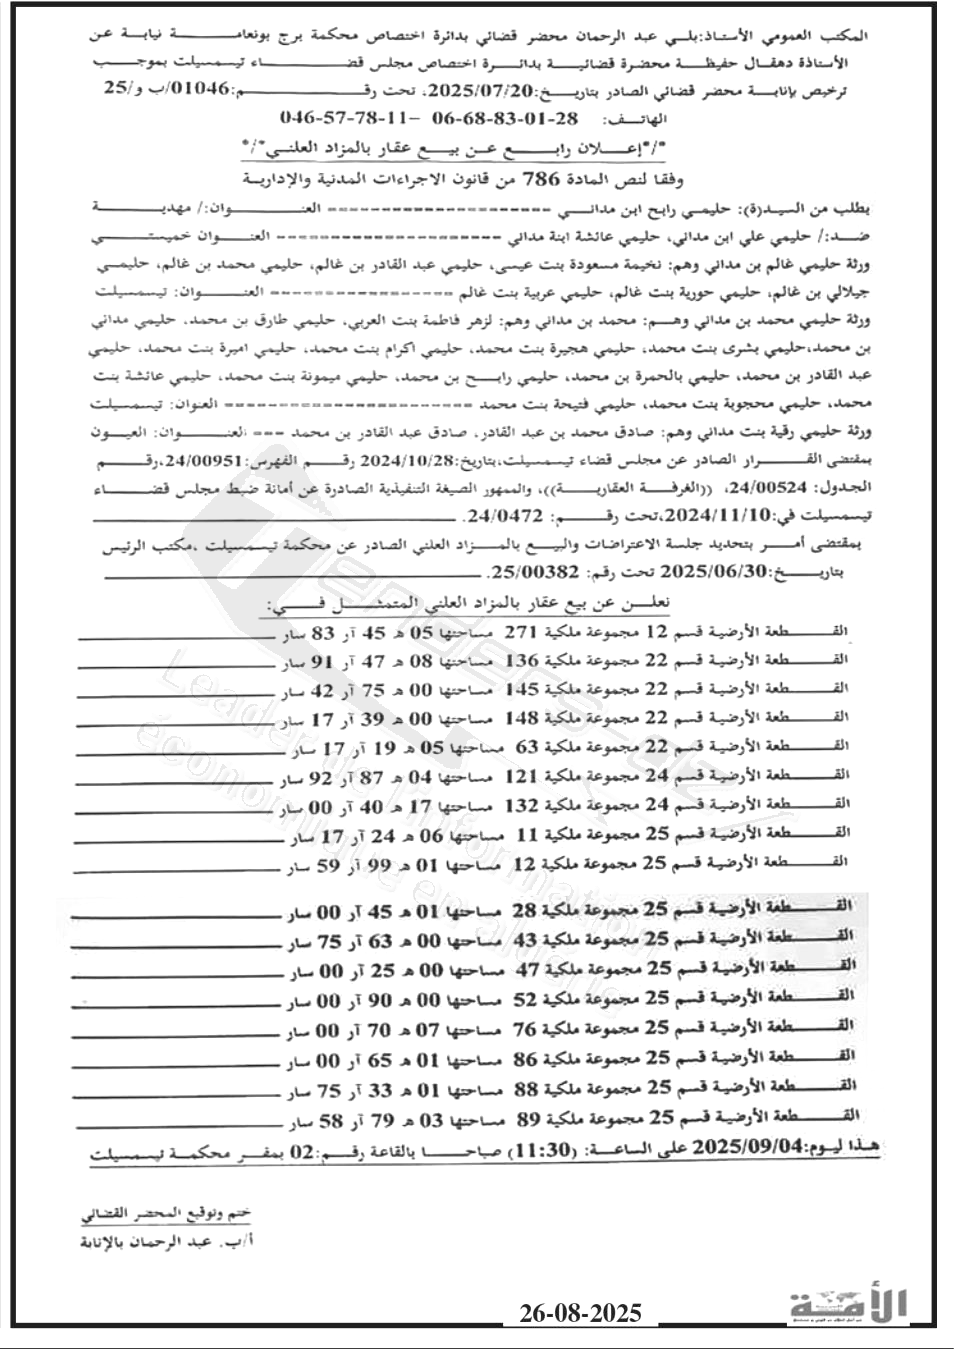 المكتب العمومي الأستاذ:بلي عبد الرحمان محضر قضائي بدائرة اختصاص محكمة برج بونعامة نيابة عن
الأستاذة دهقال حفيظة محضرة قضائية بدائرة اختصاص مجلس قضاء تيسمسيلت بموجب
ترخيص بإنابة محضر قضائي الصادر بتاريخ:2025/07/20، تحت رقم:01046/ب و/25
الهاتف: 06-68-83-01-28 –046-57-78-11
*/*إعلان رابع عن بيع عقار بالمزاد العلني*/*
وفقا لنص المادة 786 من قانون الاجراءات المدنية والإدارية
بطلب من السيد(ة): حليمي رابح ابن مداني ---------------------- العنوان:/ مهدية
ضد:/ حليمي علي ابن مداني، حليمي عائشة ابنة مداني ---------------------- العنوان خميستي
ورثة حليمي غالم بن مداني وهم: نخيمة مسعودة بنت عيسى، حليمي عبد القادر بن غالم، حليمي محمد بن غالم، حليمي
جيلالي بن غالم، حليمي حورية بنت غالم، حليمي عربية بنت غالم ------------------ العنوان: تيسمسيلت
ورثة حليمي محمد بن مداني وهم: محمد بن مداني وهم: لزهر فاطمة بنت العربي، حليمي طارق بن محمد، حليمي مداني
بن محمد،حليمي بشرى بنت محمد، حليمي هجيرة بنت محمد، حليمي اكرام بنت محمد، حليمي اميرة بنت محمد، حليمي
عبد القادر بن محمد، حليمي بالحمرة بن محمد، حليمي رابح بن محمد، حليمي ميمونة بنت محمد، حليمي عائشة بنت
محمد، حليمي محجوبة بنت محمد، حليمي فتيحة بنت محمد ------------------------ العنوان: تيسمسيلت
ورثة حليمي رقية بنت مداني وهم: صادق محمد بن عبد القادر، صادق عبد القادر بن محمد --- العنوان: العيون
بمقتضى القرار الصادر عن مجلس قضاء تيسمسيلت،بتاريخ:2024/10/28 رقم الفهرس:24/00951،رقم
الجدول: 24/00524، ((الغرفة العقارية))، والممهور الصيغة التنفيذية الصادرة عن أمانة ضبط مجلس قضاء
تيسمسيلت في:2024/11/10،تحت رقم: 24/0472.
بمقتضى أمر بتحديد جلسة الاعتراضات والبيع بالمزاد العلني الصادر عن محكمة تيسمسيلت ،مكتب الرئيس
بتاريخ:2025/06/30 تحت رقم: 25/00382.
نعلن عن بيع عقار بالمزاد العلني المتمثل في:
القطعة الأرضية قسم 12 مجموعة ملكية 271 مساحتها 05 هـ 45 آر 83 سار
القطعة الأرضية قسم 22 مجموعة ملكية 136 مساحتها 08 هـ 47 آر 91 سار
القطعة الأرضية قسم 22 مجموعة ملكية 145 مساحتها 00 هـ 75 آر 42 سار
القطعة الأرضية قسم 22 مجموعة ملكية 148 مساحتها 00 هـ 39 آر 17 سار
القطعة الأرضية قسم 22 مجموعة ملكية 63 مساحتها 05 هـ 19 آر 17 سار
القطعة الأرضية قسم 24 مجموعة ملكية 121 مساحتها 04 هـ 87 آر 92 سار
القطعة الأرضية قسم 24 مجموعة ملكية 132 مساحتها 17 هـ 40 آر 00 سار
القطعة الأرضية قسم 25 مجموعة ملكية 11 مساحتها 06 هـ 24 آر 17 سار
القطعة الأرضية قسم 25 مجموعة ملكية 12 مساحتها 01 هـ 99 آر 59 سار
القطعة الأرضية قسم 25 مجموعة ملكية 28 مساحتها 01 هـ 45 آر 00 سار
القطعة الأرضية قسم 25 مجموعة ملكية 43 مساحتها 00 هـ 63 آر 75 سار
القطعة الأرضية قسم 25 مجموعة ملكية 47 مساحتها 00 هـ 25 آر 00 سار
القطعة الأرضية قسم 25 مجموعة ملكية 52 مساحتها 00 هـ 90 آر 00 سار
القطعة الأرضية قسم 25 مجموعة ملكية 76 مساحتها 07 هـ 70 آر 00 سار
القطعة الأرضية قسم 25 مجموعة ملكية 86 مساحتها 01 هـ 65 آر 00 سار
القطعة الأرضية قسم 25 مجموعة ملكية 88 مساحتها 01 هـ 33 آر 75 سار
القطعة الأرضية قسم 25 مجموعة ملكية 89 مساحتها 03 هـ 79 آر 58 سار
هذا ليوم:2025/09/04 على الساعة: (11:30) صباحا بالقاعة رقم:02 بمقر محكمة تيسمسيلت
ختم وتوقيع المحضر القضائي
أ/ب. عبد الرحمان بالإنابة
Tenders-dz
Leader de l'information
économique en algérie
26-08-2025
الأمة